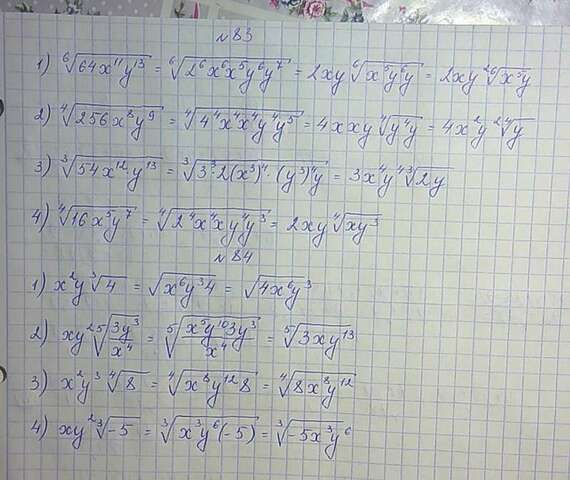 №83
1) ⁶√64x¹¹y¹³ = ⁶√2⁶x⁶x⁵y⁶y⁷ = 2xy ⁶√x⁵y⁶y = 2xy² ⁶√x⁵y
2) ⁴√256x⁸y⁹ = ⁴√4⁴x⁴x⁴y⁴y⁵ = 4xxy ⁴√y⁴y = 4x²y² ⁴√y
3) ³√54x¹²y¹³ = ³√3³·2(x³)⁴·(y³)⁴y = 3x⁴y⁴ ³√2y
4) ⁴√16x⁵y⁷ = ⁴√2⁴x⁴xy⁴y³ = 2xy ⁴√xy³
№84
1) x²y ³√4 = √x⁶y³4 = √4x⁶y³
2) xy² ⁵√3y³/x⁴ = ⁵√x⁵y¹⁰3y³/x⁴ = ⁵√3xy¹³
3) x²y³ ⁴√8 = ⁴√x⁸y¹²8 = ⁴√8x⁸y¹²
4) xy² ³√-5 = ³√x³y⁶(-5) = ³√-5x³y⁶